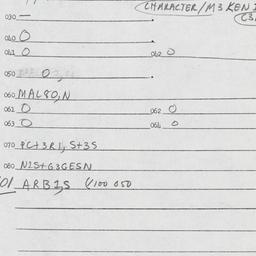 CHARACTER/M3 KEN
030 —
040 O
041 O 042 O
050 O
060 MAL80,N
061 O 062 O
063 O 064 O
070 PC+3R1, S+3S
080 N2S+G3GESN
01 ARB1,S V100 050